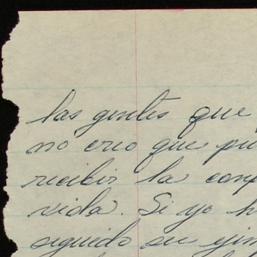 las gentes que
no creo que pu
recibir la com
vida. Si yo h
seguido su